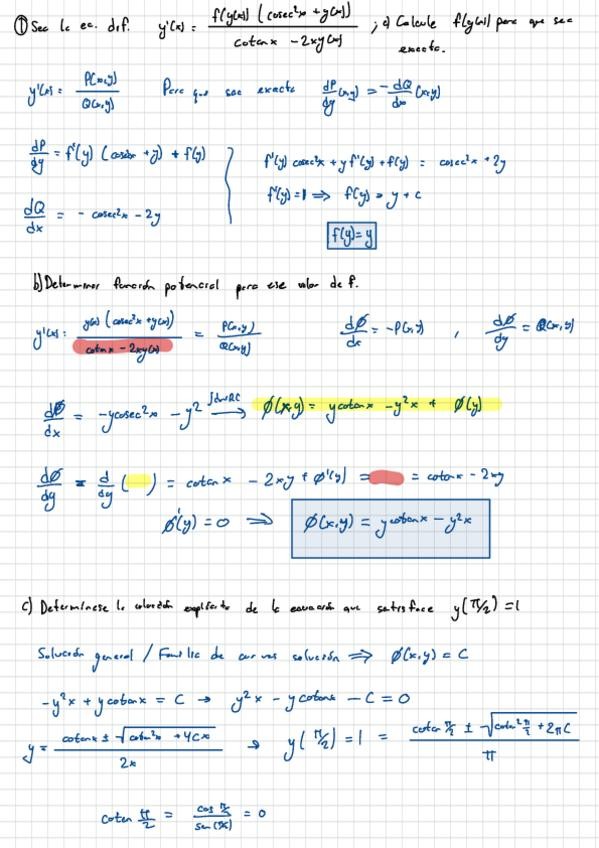 ① Sea la ec. dif. y'(x) = f(y(x)) (cosec²x + y(x)) / cotan x - 2xy(x) ; a) Calcule f(y(x)) para que sea exacta.
y'(x) = P(x,y) / Q(x,y) Para que sea exacta dP/dy (x,y) = -dQ/dx (x,y)
dP/dy = f'(y) (cosec²x + y) + f(y)
f'(y) cosec²x + y f'(y) + f(y) = cosec²x + 2y
f'(y) = 1 ⟹ f(y) = y + c
dQ/dx = - cosec²x - 2y
f(y) = y
b) Determinar función potencial para ese valor de f.
y'(x) = y(x) (cosec²x + y(x)) / cotan x - 2xy(x) = P(x,y) / Q(x,y) dØ/dx = -P(x,y) , dØ/dy = Q(x,y)
dØ/dx = -ycosec²x - y² → Ø(x,y) = ycotan x - y²x + Ø(y)
dØ/dy = d/dy ( ) = cotan x - 2xy + Ø'(y) = = cotan x - 2xy
Ø'(y) = 0 ⟹ Ø(x,y) = ycotan x - y²x
c) Determínese la solución explícita de la ecuación que satisface y(π/2) = 1
Solución general / Familia de curvas solución ⟹ Ø(x,y) = C
-y²x + ycotan x = C → y²x - ycotan x - C = 0
y = cotan x ± √(cotan²x + 4Cx) / 2x → y(π/2) = 1 = cotan π/2 ± √(cotan² π/2 + 2πC) / π
cotan π/2 = cos π/2 / sen(π/2) = 0